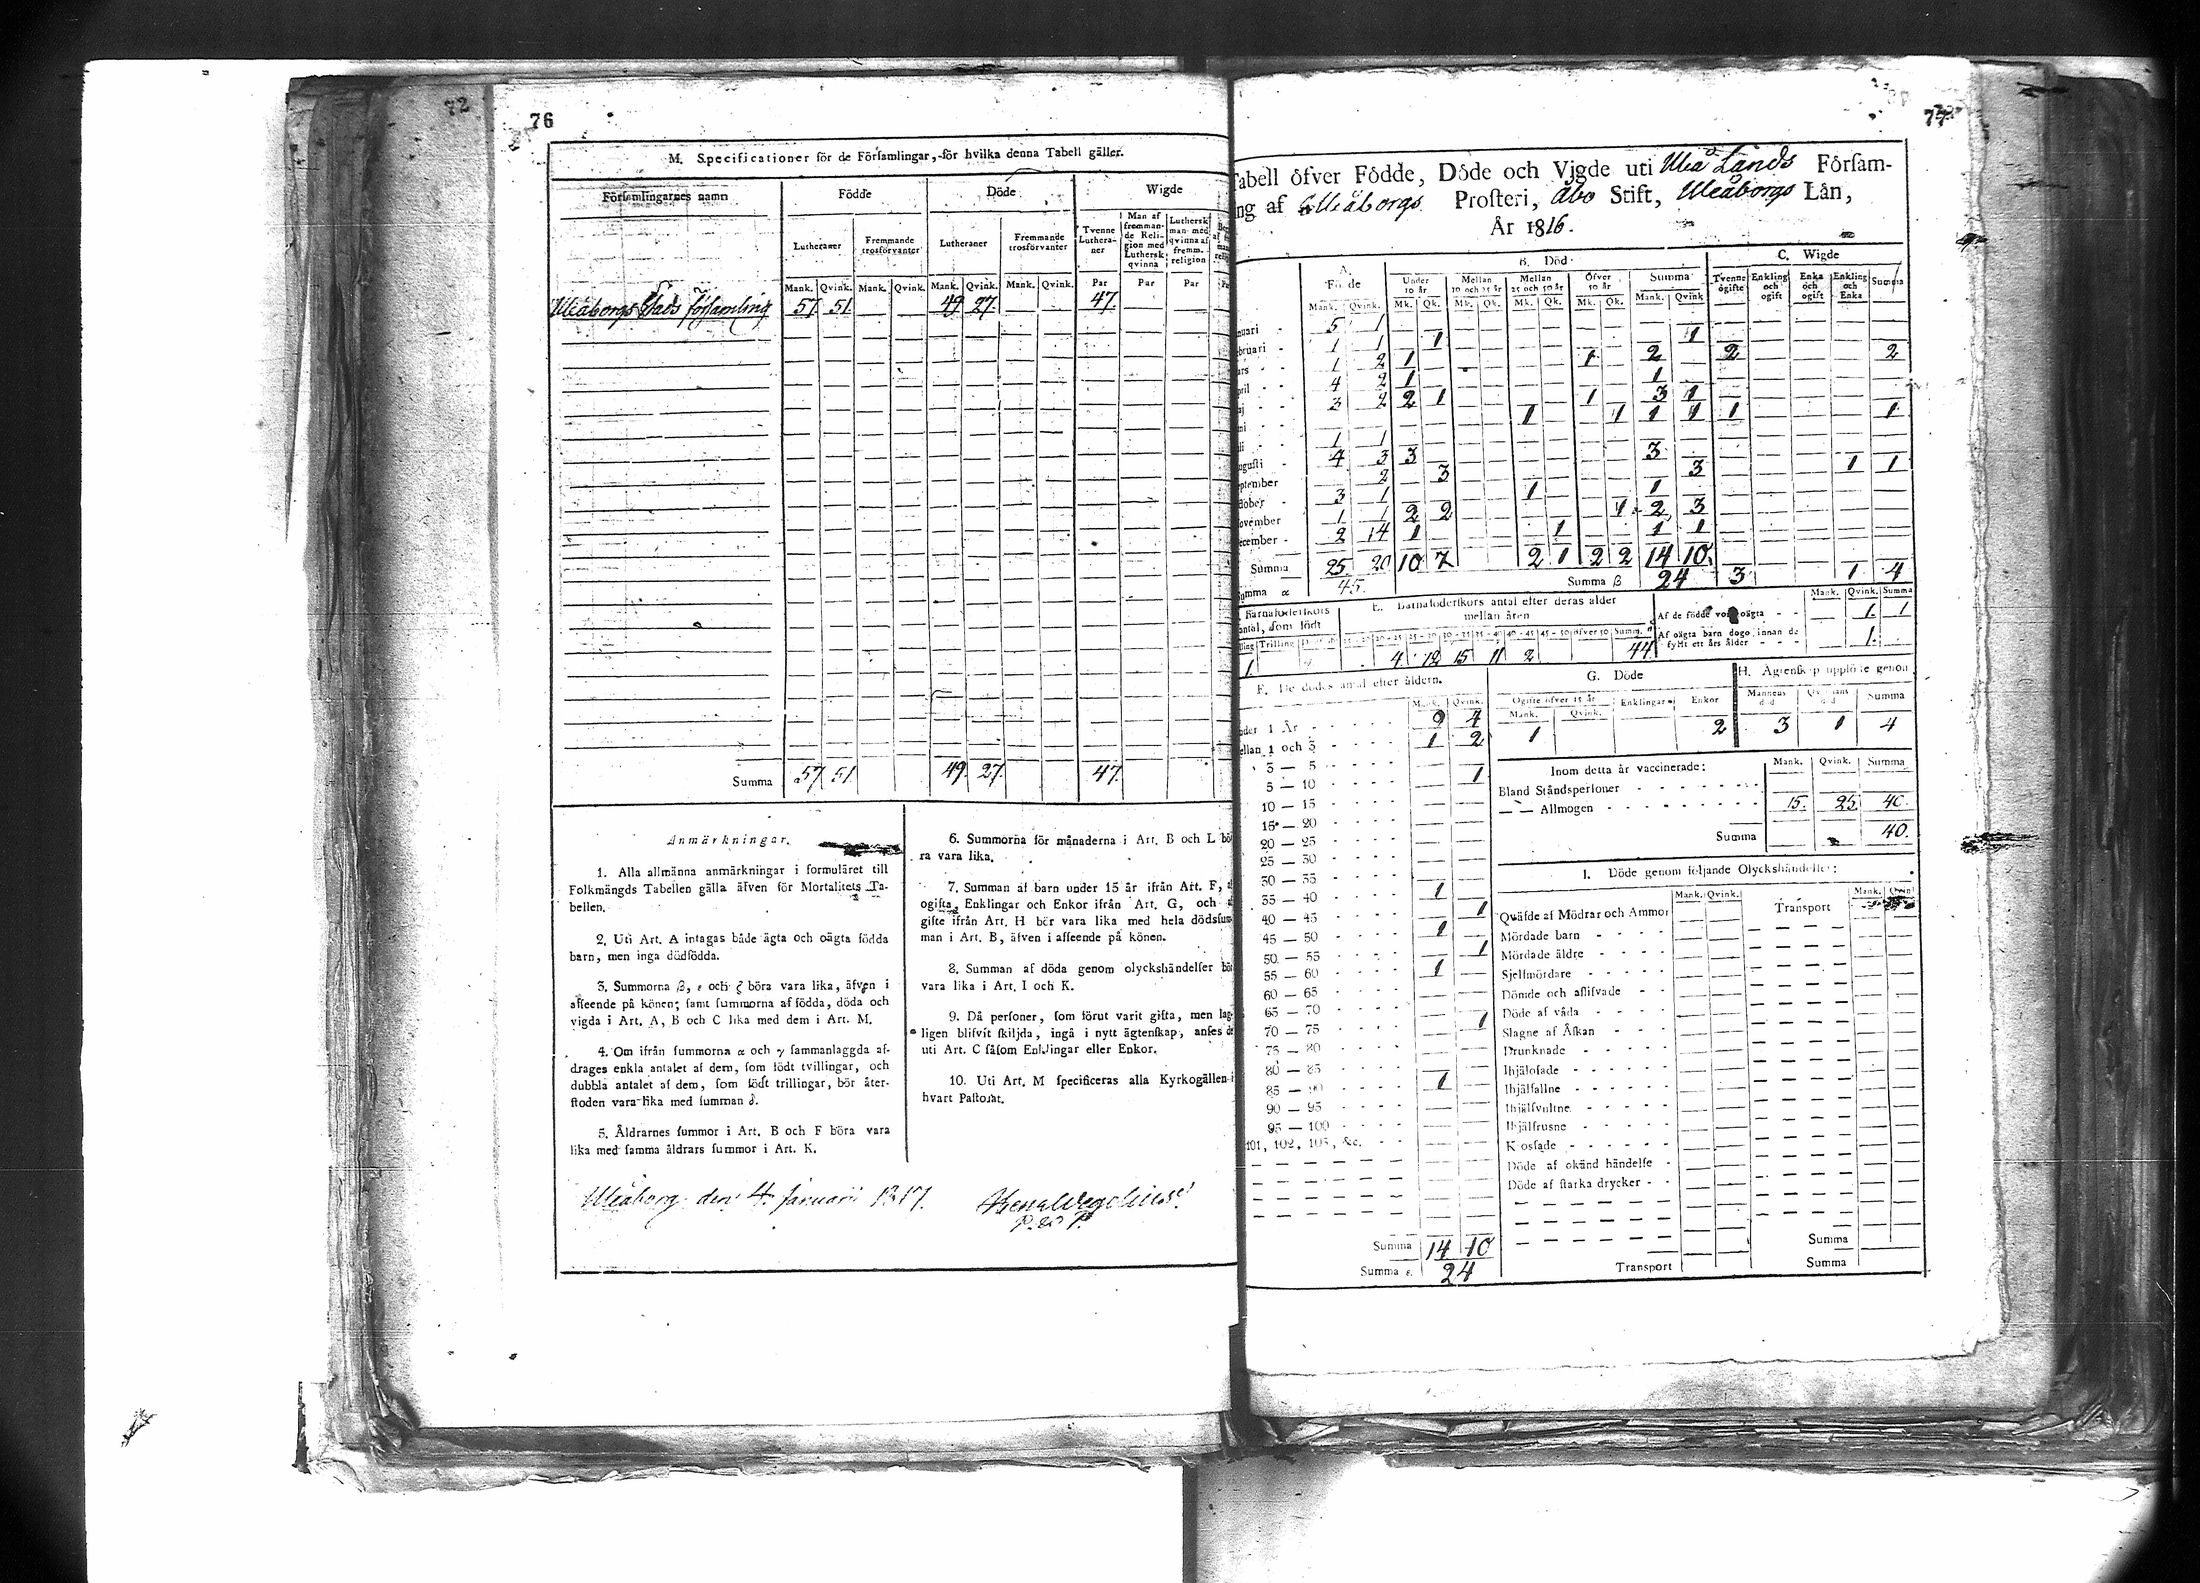 72
76
M. Specificationer för de Förſamlingar, för hvilka denna Tabell gäller.
Förſamlingarnes namn Födde Döde Wigde
Lutheraner Fremmande trosförvanter Lutheraner Fremmande trosförvanter Tvenne Lutheraner Man af fremmande Religion med Lutherſk qvinna Lutherſk man med qvinna af fremm. religion
Mank. Qvink. Mank. Qvink. Mank. Qvink. Mank. Qvink. Par Par Par
Uleåborgs Stads förſamling 57 51 49 27 47
Summa 57 51 49 27 47
Anmärkningar.
1. Alla allmänna anmärkningar i formuläret till
Folkmängds Tabellen gälla äfven för Mortalitets Ta-
bellen.
2. Uti Art. A intagas både ägta och oägta födda
barn, men inga dödfödda.
3. Summorna β, ε och ζ böra vara lika, äfven i
afſeende på könen; ſamt ſummorna af födda, döda och
vigda i Art. A, B och C lika med dem i Art. M.
4. Om ifrån ſummorna α och γ ſammanlaggda af-
drages enkla antalet af dem, ſom födt tvillingar, och
dubbla antalet af dem, ſom födt trillingar, bör åter-
ſtoden vara lika med ſumman δ.
5. Åldrarnes ſummor i Art. B och F böra vara
lika med ſamma åldrars ſummor i Art. K.
6. Summorna för månaderna i Art. B och L bö
ra vara lika.
7. Summan af barn under 15 år ifrån Art. F,
ogiſta, Enklingar och Enkor ifrån Art. G, och
gifte ifrån Art. H bör vara lika med hela dödsſum
man i Art. B, äfven i afſeende på könen.
8. Summan af döda genom olyckshändelſer bör
vara lika i Art. I och K.
9. Då perſoner, ſom förut varit gifta, men lag-
ligen blifvit ſkiljda, ingå i nytt ägtenſkap, anſes de
uti Art. C ſåſom Enklingar eller Enkor.
10. Uti Art. M ſpecificeras alla Kyrkogällen i
hvart Paſtorat.
Uleåborg den 4 Januarii 1817.
77
Tabell öfver Födde, Döde och Vigde uti Uleå Lands Förſam-
ng af Uleåborgs Proſteri, Åbo Stift, Uleåborgs Län,
År 1816.
A. Födde B. Död C. Wigde
Under 10 år Mellan 10 och 25 år Mellan 25 och 50 år Öfver 50 år Summa Tvenne ogifte Enkling och ogift Enka och ogift Enkling och Enka Summa
Mank. Qvink. Mk. Qk. Mk. Qk. Mk. Qk. Mk. Qk. Mank. Qvink
nuari 5 1
ebruari 1 1 1 1
ars 1 2 1 1 2 2 2
pril 4 2 1 1
aj 3 2 2 1 1 3 1
ni 1 1 1 1 1 1
li 1 1
uguſti 4 3 3 3
eptember 2 3 3 1 1
ctober 3 1 1 1
ovember 1 1 2 2 1 2 3
ecember 2 14 1 1 1 1
Summa 25 20 10 7 2 1 2 2 14 10
Summa α 45 Summa β 24 3 1 4
Barnaföderſkors antal, ſom födt
lling Trilling
1
E. Barnaföderſkors antal efter deras ålder
mellan åren
20-25 25-30 30-35 35-40 40-45 45-50 öfver 50 Summ.
4 12 15 11 2 44
Mank. Qvink. Summa
Af de födde voro oägta 1 1
Af oägta barn dogo innan de fyllt ett års ålder 1
F. De dödes antal efter åldern.
Mank. Qvink.
nder 1 År 9 4
ellan 1 och 3 1 2
3 — 5
5 — 10 1
10 — 15
15 — 20
20 — 25
25 — 30
30 — 35
35 — 40 1
40 — 45 1
45 — 50 1
50 — 55 1
55 — 60 1
60 — 65
65 — 70
70 — 75 1
75 — 80
80 — 85
85 — 90 1
90 — 95
95 — 100
101, 102, 103, &c.
Summa 14 10
Summa ε. 24
G. Döde
Ogifte öfver 15 år Enklingar Enkor
Mank. Qvink.
1 2
H. Ägtenſkap upplöſte genom
Mannens död Qvinnans död Summa
3 1 4
Inom detta år vaccinerade: Mank. Qvink. Summa
Bland Ståndsperſoner
— — Allmogen 15 25 40
Summa 40
I. Döde genom följande Olyckshändelſer:
Mank. Qvink. Mank. Qvink
Qväfde af Mödrar och Ammor Transport
Mördade barn
Mördade äldre
Sjelfmördare
Dömde och aflifvade
Döde af våda
Slagne af Åſkan
Drunknade
Ihjälofade
Ihjälfallne
Ihjälſvultne
Ihjälfrusne
Kroſſade
Döde af okänd händelſe
Döde af ſtarka drycker
Summa
Transport Summa